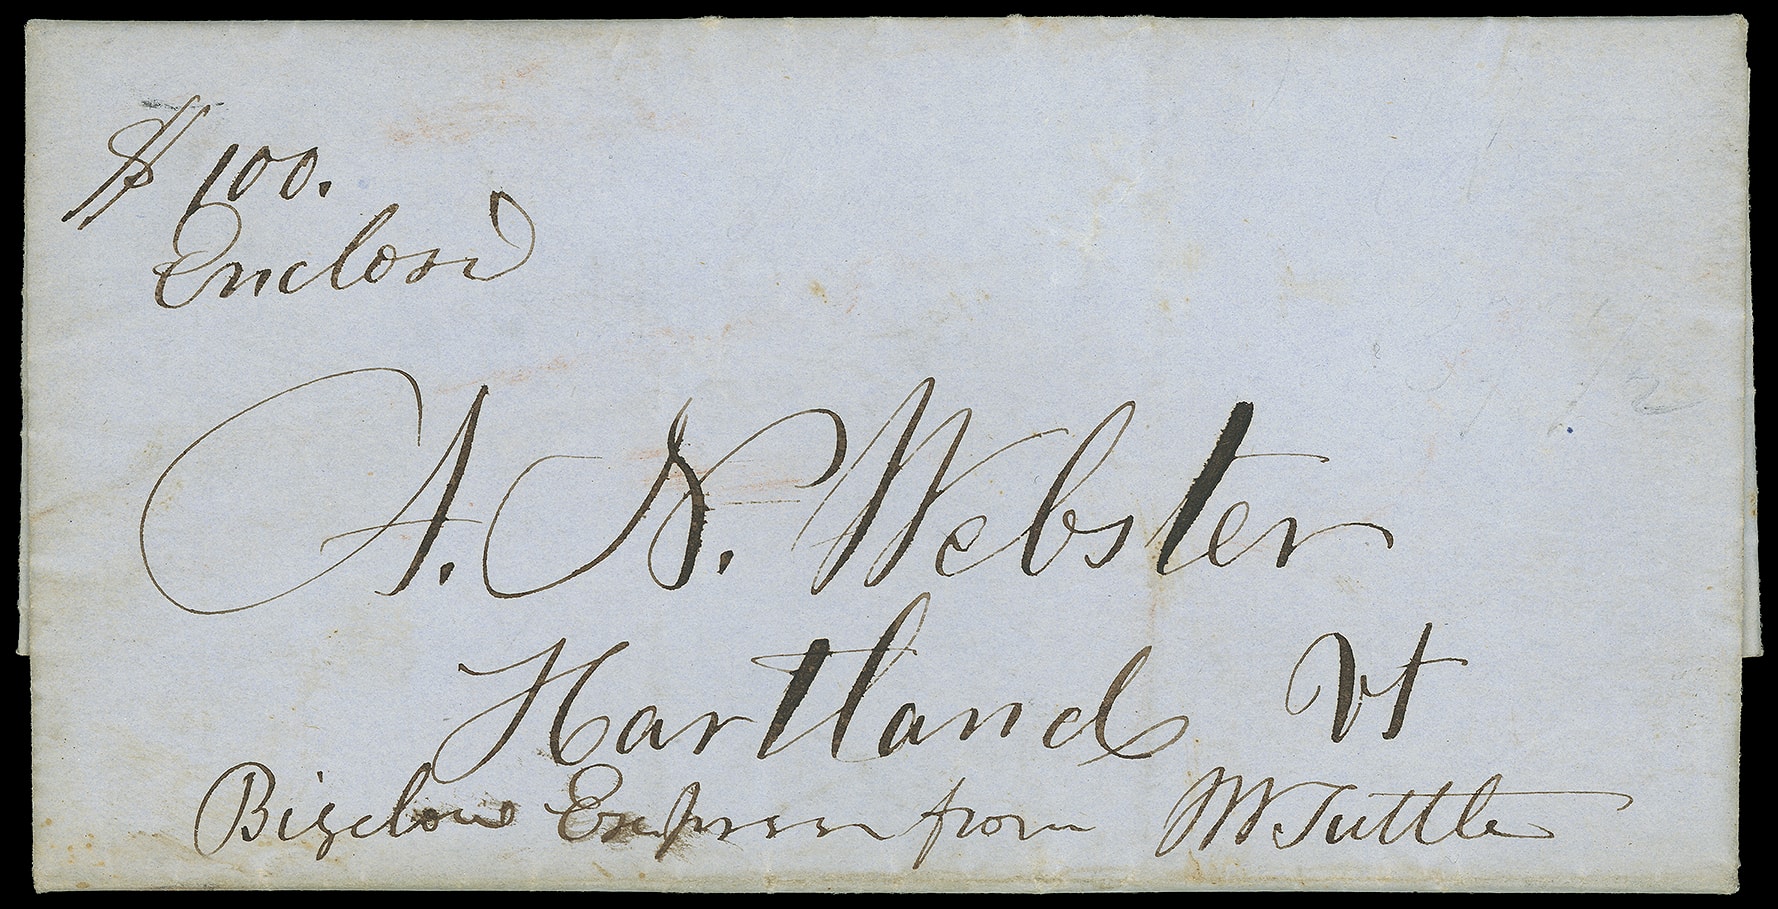 $100.
Enclosd
A. N. Webster
Hartland Vt
Bigelow Express from W Tuttle